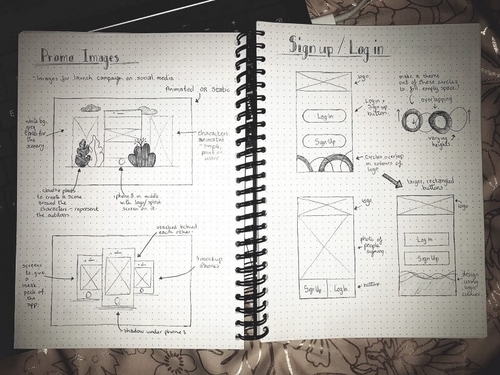 Promo Images
Images for launch campaign on social media
Animated OR Static
characters
clouds, plants
to create a scene
around the
characters - represent
the outdoors
iphone 8 in middle
with logo/splash
screen on it.
stacked behind
each other
screens
to give
a
sneak
peek of
the
app.
3 mockup
iphones
shadow under phones
Sign up / Log in
logo
Log In
Sign Up
Login +
Sign up
buttons
Circles overlap
in colours of
logo
make a theme
out of these circles
to fill empty space!
overlapping
varying
heights
larger, rectangled
buttons
logo
photo of
people
Sign Up
Log In
buttons
logo
Log In
Sign Up
design
using logo
colours